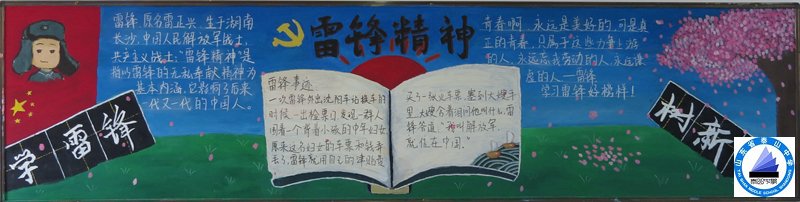 雷锋 原名雷正兴,生于湖南
长沙,中国人民解放军战士,
共产主义战士;"雷锋精神"是
指以雷锋的无私奉献精神为
基本内涵,它影响了后来
一代又一代的中国人。
雷锋精神
青春啊,永远是美好的,可是真
正的青春,只属于这些力争上游
的人,永远忘我劳动的人,永远谦
虚的人—雷锋
学习雷锋好榜样!
学雷锋
雷锋事迹:
一次雷锋外出沈阳车站换车的
时候,一出检票口,发现一群人
围着一个背着小孩的中年妇女
原来这个妇女的车票和钱弄
丢了,雷锋就用自己的津贴费
买了一张火车票,塞到大嫂手
里,大嫂含着泪问他叫什么,雷
锋答道:"我叫解放军,
就住在中国。"
树新
山东省泰山中学